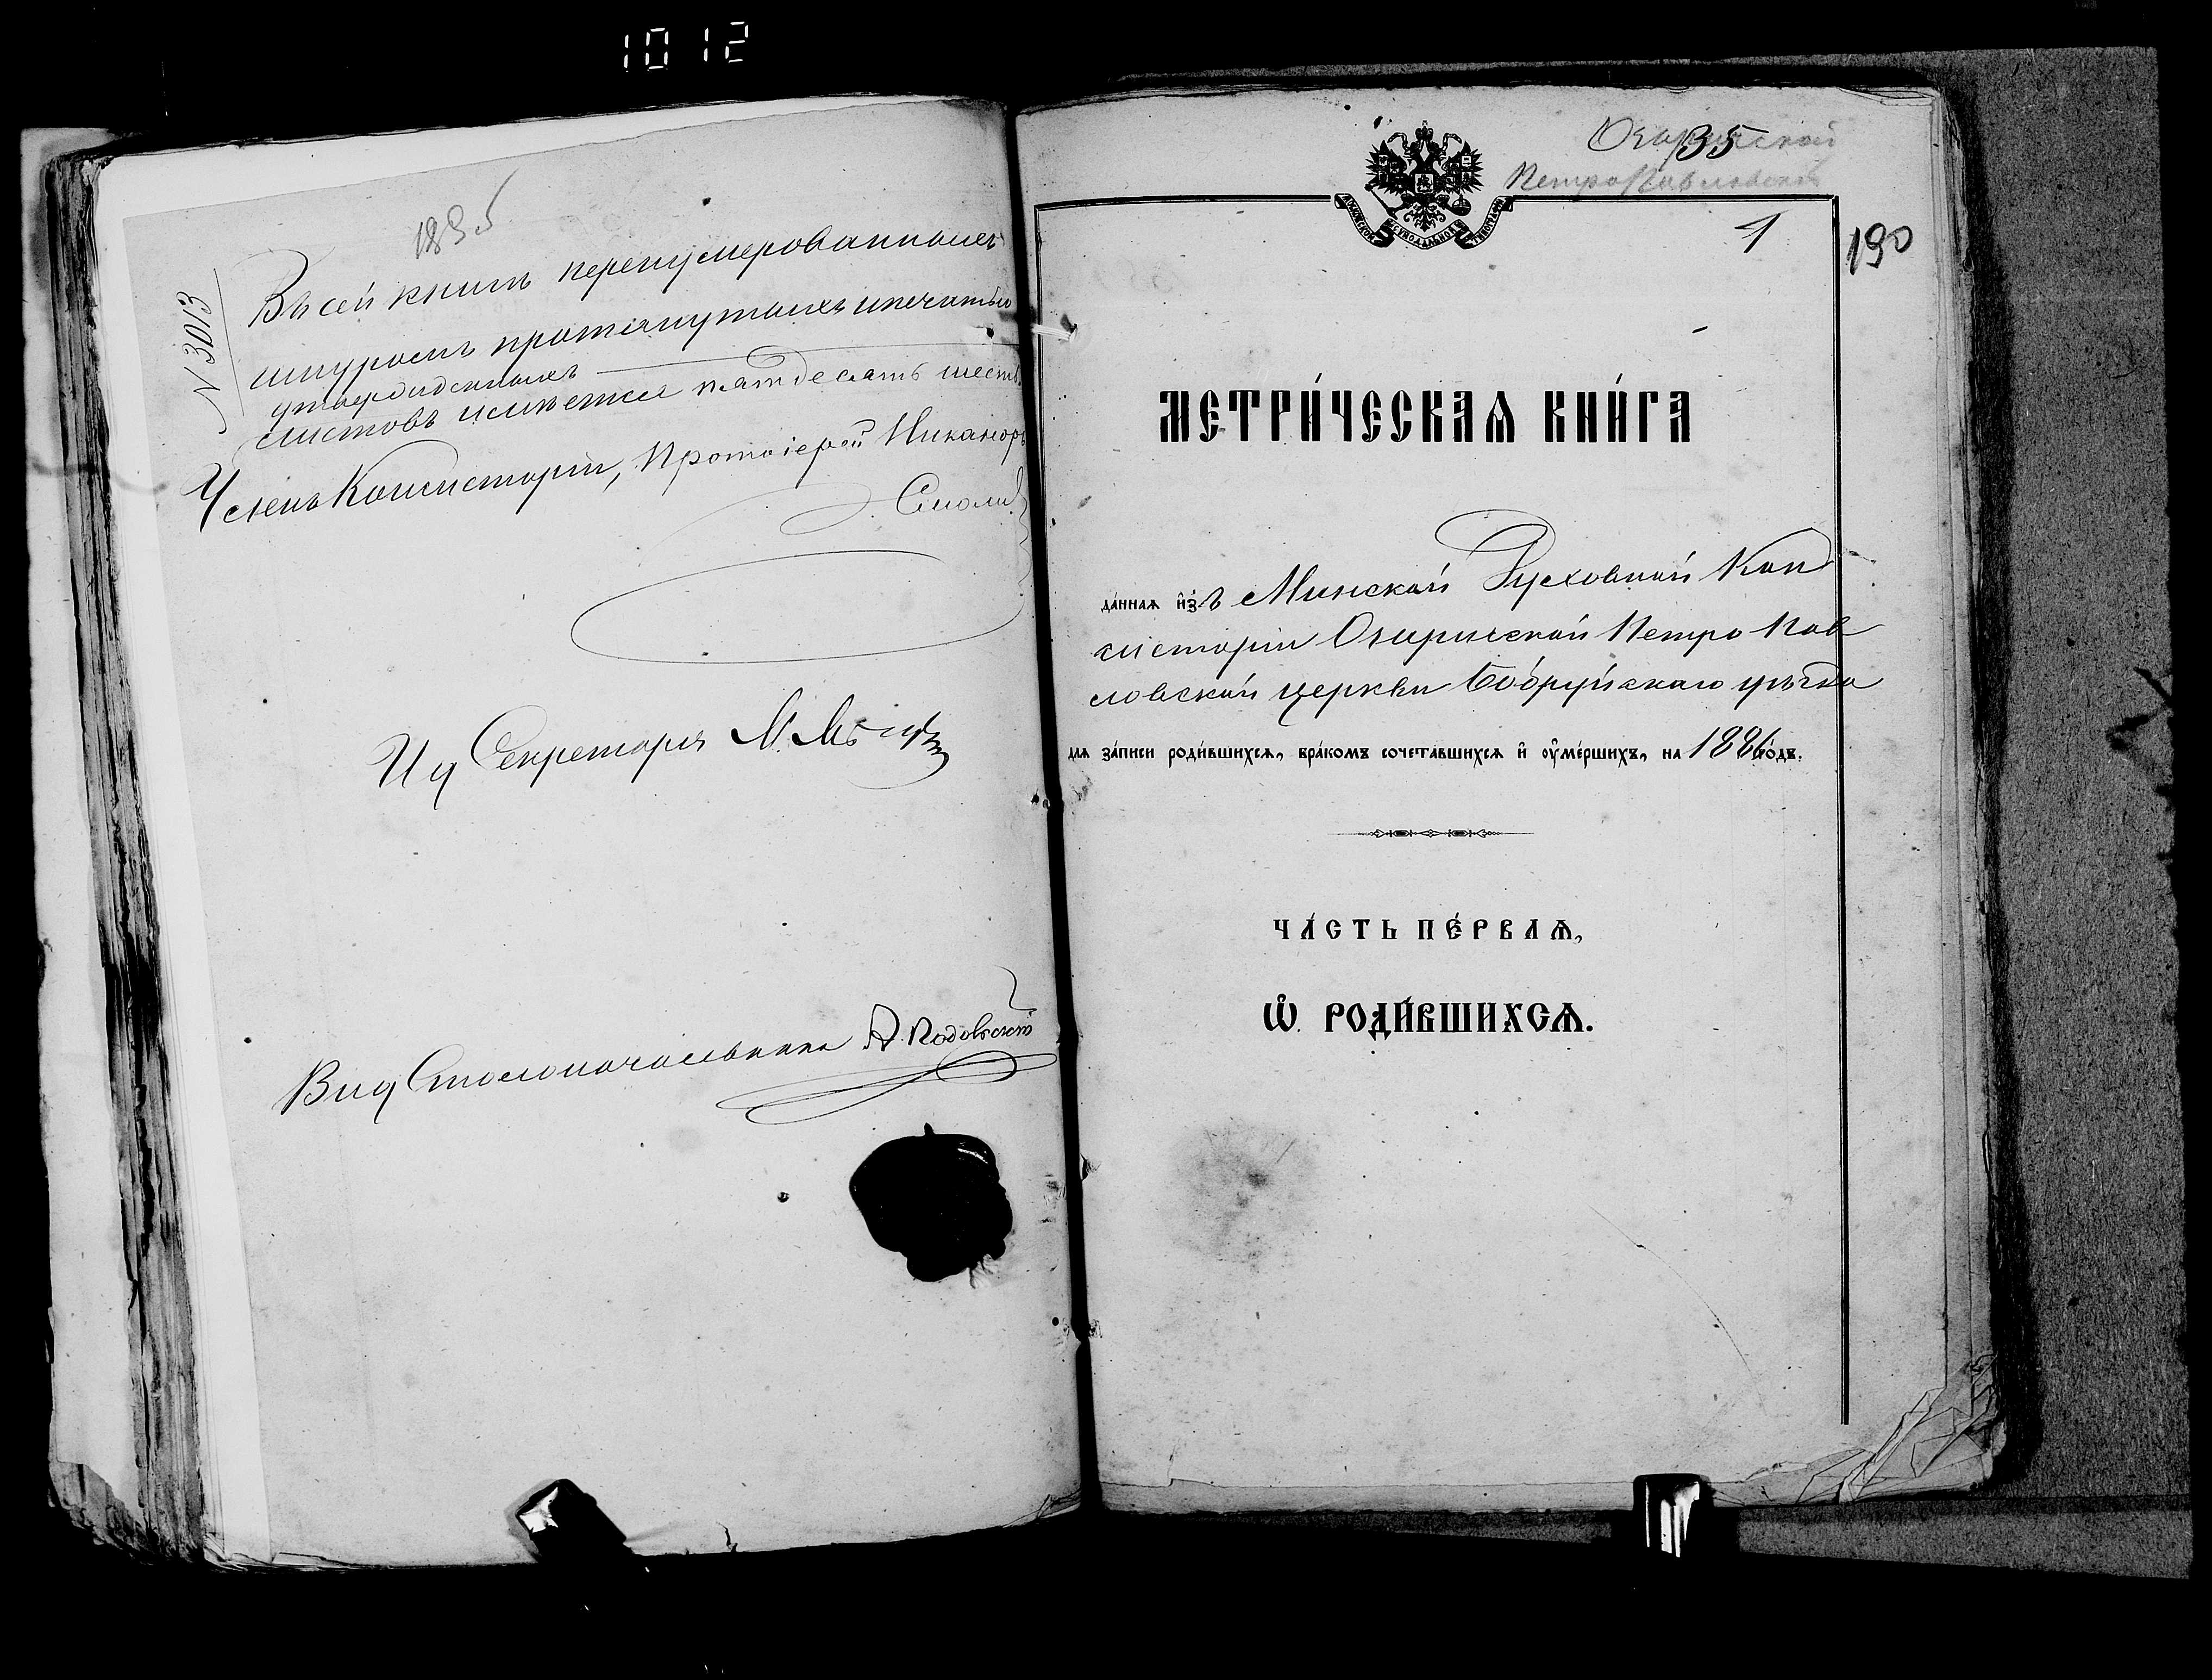 1012
1885
N 3013
Въ сей книгѣ перенумерованныхъ
шнуромъ протянутыхъ и печатью
утвержденныхъ
листовъ имѣется пятьдесятъ шесть
Членъ Консисторіи, Протоіерей Никаноръ
Смоли
И д Секретаря
В и д Столоначальника А.
35
Петропавловской
МОСКОВСКОЙ СѴНОДАЛЬНОЙ ТИПОГРАФІИ
1
190
МЕТРИ́ЧЕСКАѦ КНИ́ГА
да́ннаѧ и҆зъ Минской Духовной Кон
систоріи Озаричской Петро Пав
ловской церкви Бобруйскаго уѣзда
длѧ за́писи роди́вшихсѧ, бра́комъ сочета́вшихсѧ и҆ ᲂу҆ме́ршихъ, на 1886 го́дъ.
ЧА́СТЬ ПЕ́РВАѦ,
Ѽ РОДИ́ВШИХСѦ.